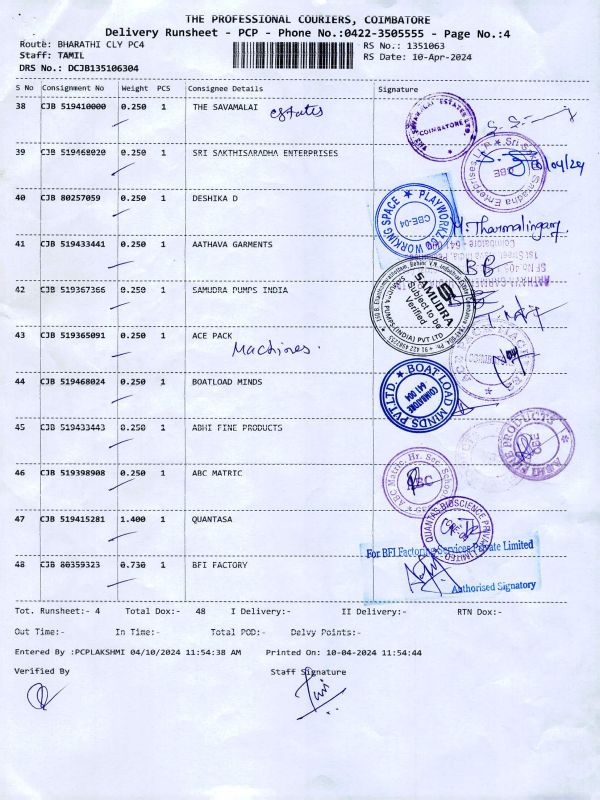 THE PROFESSIONAL COURIERS, COIMBATORE
Delivery Runsheet - PCP - Phone No.:0422-3505555 - Page No.:4
Route: BHARATHI CLY PC4 RS No.: 1351063
Staff: TAMIL RS Date: 10-Apr-2024
DRS No.: DCJB135106304
S No Consignment No Weight PCS Consignee Details Signature
38 CJB 519410000 0.250 1 THE SAVAMALAI Estates
COIMBATORE
39 CJB 519468020 0.250 1 SRI SAKTHISARADHA ENTERPRISES
CBE
40 CJB 80257059 0.250 1 DESHIKA D
PLAYWORKZ CBE-04 WORKING SPACE
M. Tharmalingam
41 CJB 519433441 0.250 1 AATHAVA GARMENTS
BB
42 CJB 519367366 0.250 1 SAMUDRA PUMPS INDIA
SAMUDRA
Subject to be
Verified
43 CJB 519365091 0.250 1 ACE PACK
Machines.
44 CJB 519468024 0.250 1 BOATLOAD MINDS
BOAT LOAD MINDS PVT.LTD. COIMBATORE 641 004
45 CJB 519433443 0.250 1 ABHI FINE PRODUCTS
ABHI FINE PRODUCTS
46 CJB 519398908 0.250 1 ABC MATRIC
ABC Matric. Hr. Sec. School
ABC
47 CJB 519415281 1.400 1 QUANTASA
QUANTAS BIOSCIENCE PRIVATE LIMITED
48 CJB 80359323 0.730 1 BFI FACTORY
For BFI Factoring Services Private Limited
Authorised Signatory
Tot. Runsheet:- 4 Total Dox:- 48 I Delivery:- II Delivery:- RTN Dox:-
Out Time:- In Time:- Total POD:- Delvy Points:-
Entered By :PCPLAKSHMI 04/10/2024 11:54:38 AM Printed On: 10-04-2024 11:54:44
Verified By Staff Signature